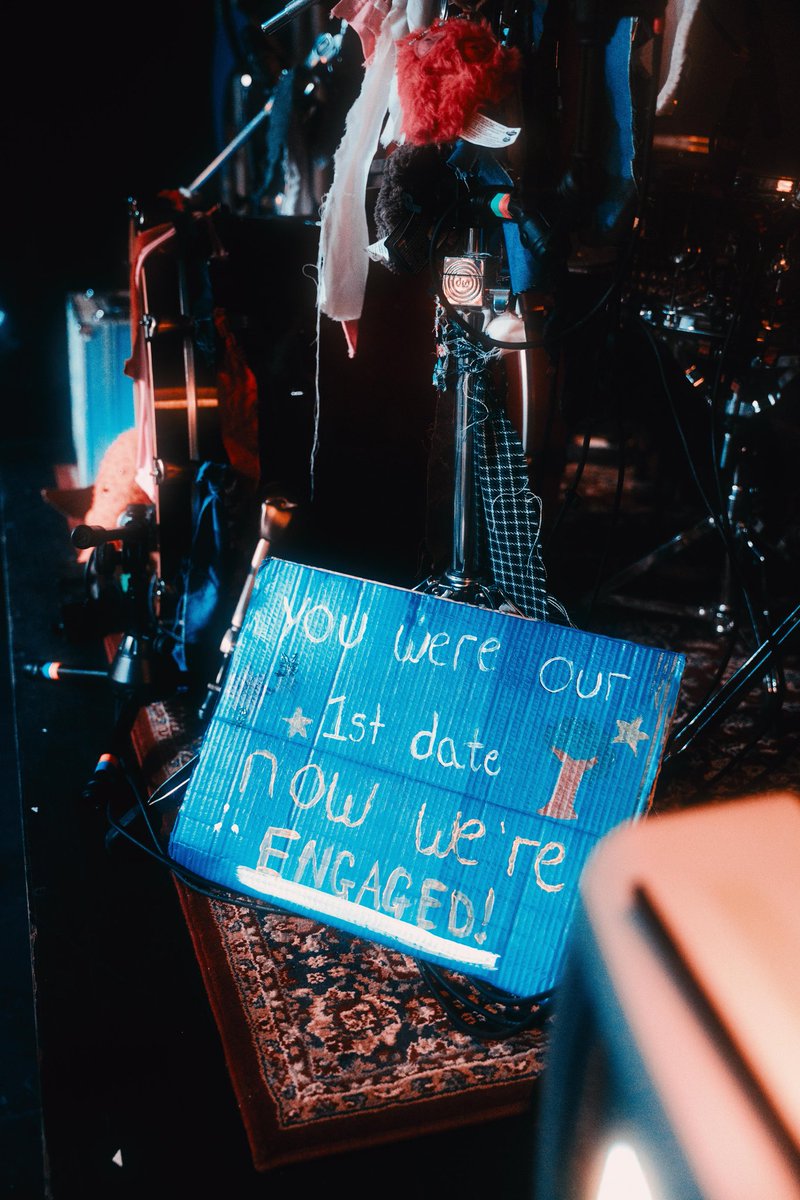 You were our
1st date
now we're
ENGAGED!